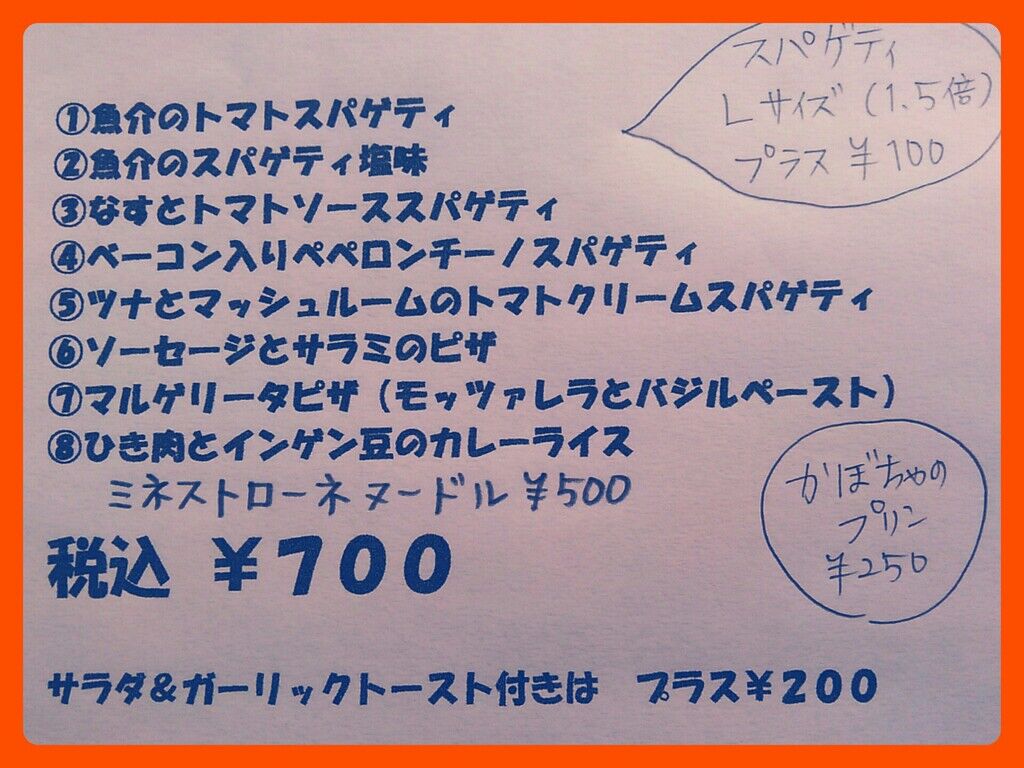 スパゲティ
Lサイズ(1.5倍)
プラス ¥100
①魚介のトマトスパゲティ
②魚介のスパゲティ塩味
③なすとトマトソーススパゲティ
④ベーコン入りペペロンチーノスパゲティ
⑤ツナとマッシュルームのトマトクリームスパゲティ
⑥ソーセージとサラミのピザ
⑦マルゲリータピザ(モッツァレラとバジルペースト)
⑧ひき肉とインゲン豆のカレーライス
ミネストローネヌードル ¥500
かぼちゃの
プリン
¥250
税込 ¥700
サラダ&ガーリックトースト付きは プラス¥200